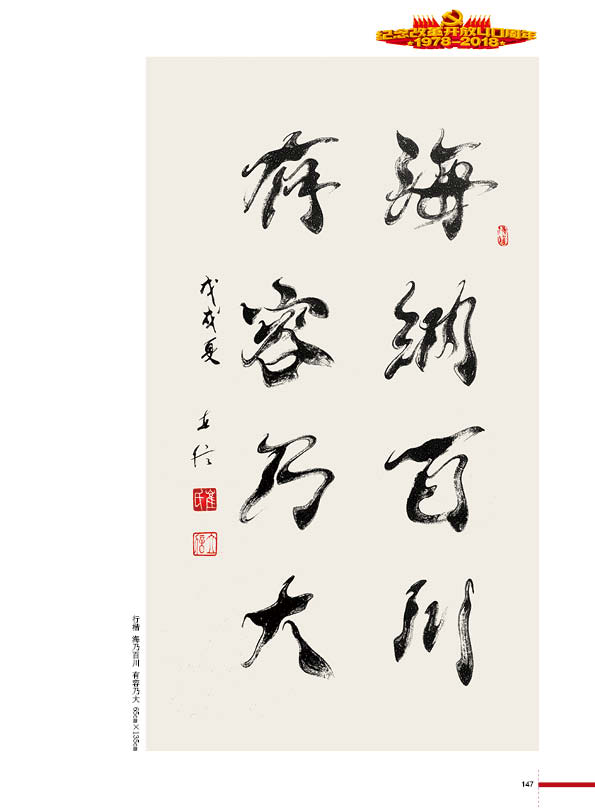 纪念改革开放40周年
1978-2018
海纳百川
有容乃大
戊戌夏
行楷 海乃百川 有容乃大 65cm×135cm
147